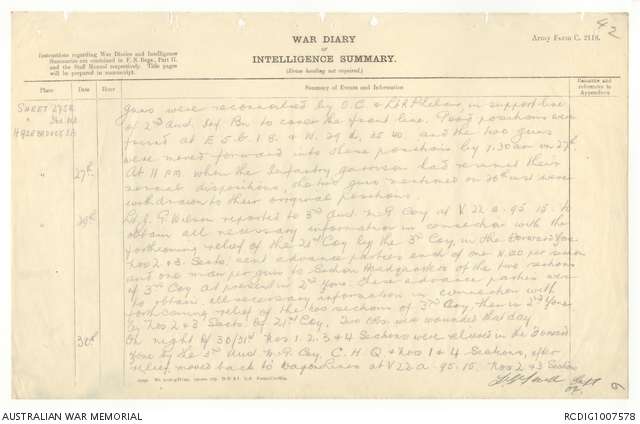 42
Army Form C. 2118.
WAR DIARY
or
INTELLIGENCE SUMMARY.
(Erase heading not required.)
Instructions regarding War Diaries and Intelligence
Summaries are contained in F. S. Regs., Part II.
and the Staff Manual respectively. Title pages
will be prepared in manuscript.
Place
Date
Hour
Summary of Events and Information
Remarks and
references to
Appendices
SHEET
guns were reconnoitred by O.C. & Lt in support line
of 2nd Aust Inf Bn to cover the front line. Good positions were
found at E 5 & N. 29 and the two guns
were moved forward into these positions by 1.30 am on 27th.
" 27th At 11 PM when the Infantry garrison had resumed their
normal dispositions, the two guns mentioned on 26th inst were
withdrawn to their original positions.
" 29th Lt J. G. Wilson reported to 3rd Aust M.G Coy at V 22 a. 95. 15. to
obtain all necessary information in connection with the
forthcoming relief of the 21st Coy by the 3rd Coy, in the Forward Zone
Nos 2 & 3 Sects. sent advance parties each of one N.CO per section
and one man per gun to Section Headquarters of the two sections
of 3rd Coy at present in 2nd Zone. These advance parties were
to obtain all necessary information in connection with
forthcoming relief of the two sections of 3rd Coy, then in 2nd Zone
by Nos 2 & 3 Sects. of 21st Coy. Two ORs were wounded that day
30th On night of 30/31st Nos 1. 2. 3 & 4 Sections were relieved in the Forward
Zone by the 3rd Aust M.G. Coy. C. H. Q & Nos 1 & 4 Sections, after
relief, moved back to Wagon Lines at V 22 a. 95. 15. Nos 2 & 3 Sections
Capt
OC.
AUSTRALIAN WAR MEMORIAL
RCDIG1007578